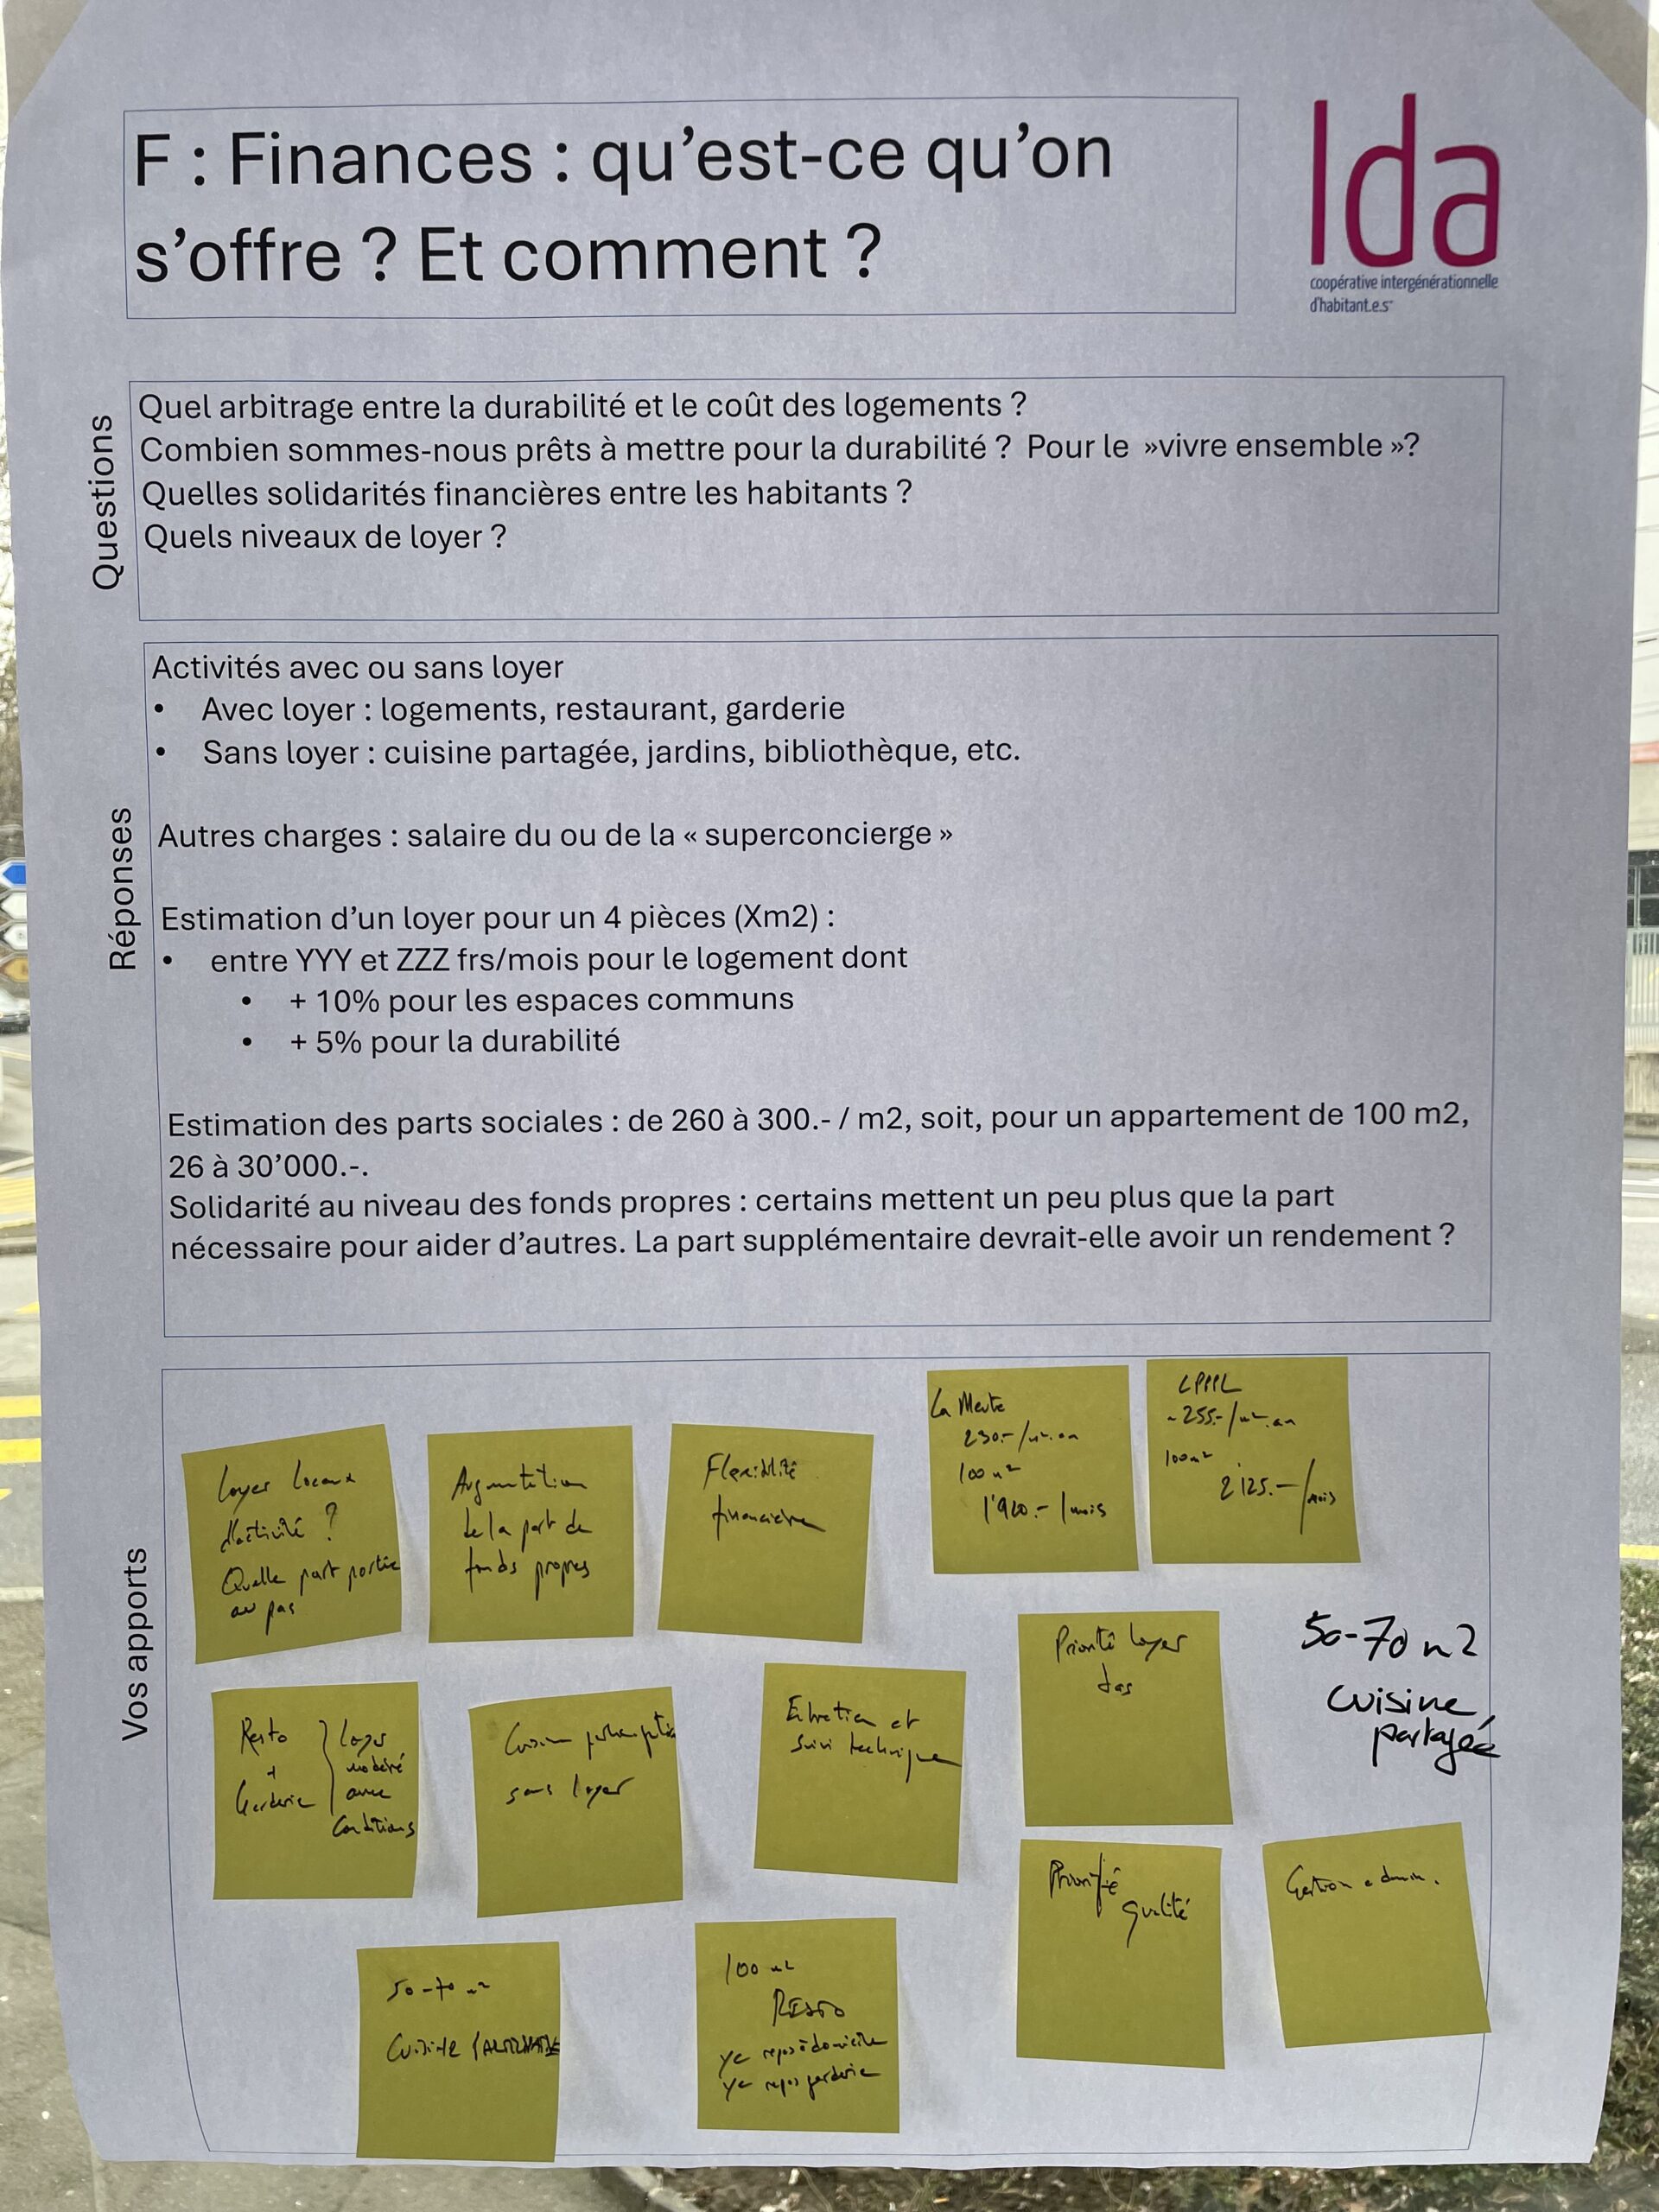 F : Finances : qu’est-ce qu’on
s’offre ? Et comment ?
Ida
coopérative intergénérationnelle
d'habitant.e.s
Questions
Quel arbitrage entre la durabilité et le coût des logements ?
Combien sommes-nous prêts à mettre pour la durabilité ? Pour le »vivre ensemble »?
Quelles solidarités financières entre les habitants ?
Quels niveaux de loyer ?
Réponses
Activités avec ou sans loyer
• Avec loyer : logements, restaurant, garderie
• Sans loyer : cuisine partagée, jardins, bibliothèque, etc.
Autres charges : salaire du ou de la « superconcierge »
Estimation d’un loyer pour un 4 pièces (Xm2) :
• entre YYY et ZZZ frs/mois pour le logement dont
• + 10% pour les espaces communs
• + 5% pour la durabilité
Estimation des parts sociales : de 260 à 300.- / m2, soit, pour un appartement de 100 m2,
26 à 30’000.-.
Solidarité au niveau des fonds propres : certains mettent un peu plus que la part
nécessaire pour aider d’autres. La part supplémentaire devrait-elle avoir un rendement ?
Vos apports
Loyer locaux
d'activité ?
Quelle part portée
ou pas
Augmentation
de la part de
fonds propres
Flexibilité
financière
La Meute
230.-/m².an
100 m²
1'920.- /mois
CPPPL
~255.-/m².an
100m²
2'125.-/mois
Priorité loyer
bas
50-70 m2
cuisine
partagée
Resto
+
Garderie
loyer
modéré
avec
conditions
Cuisine
sans loyer
Entretien et
suivi technique
Priorité
qualité
Gestion admin.
50-70 m²
Cuisine
100 m²
RESTO
yc repas à domicile
yc repas garderie